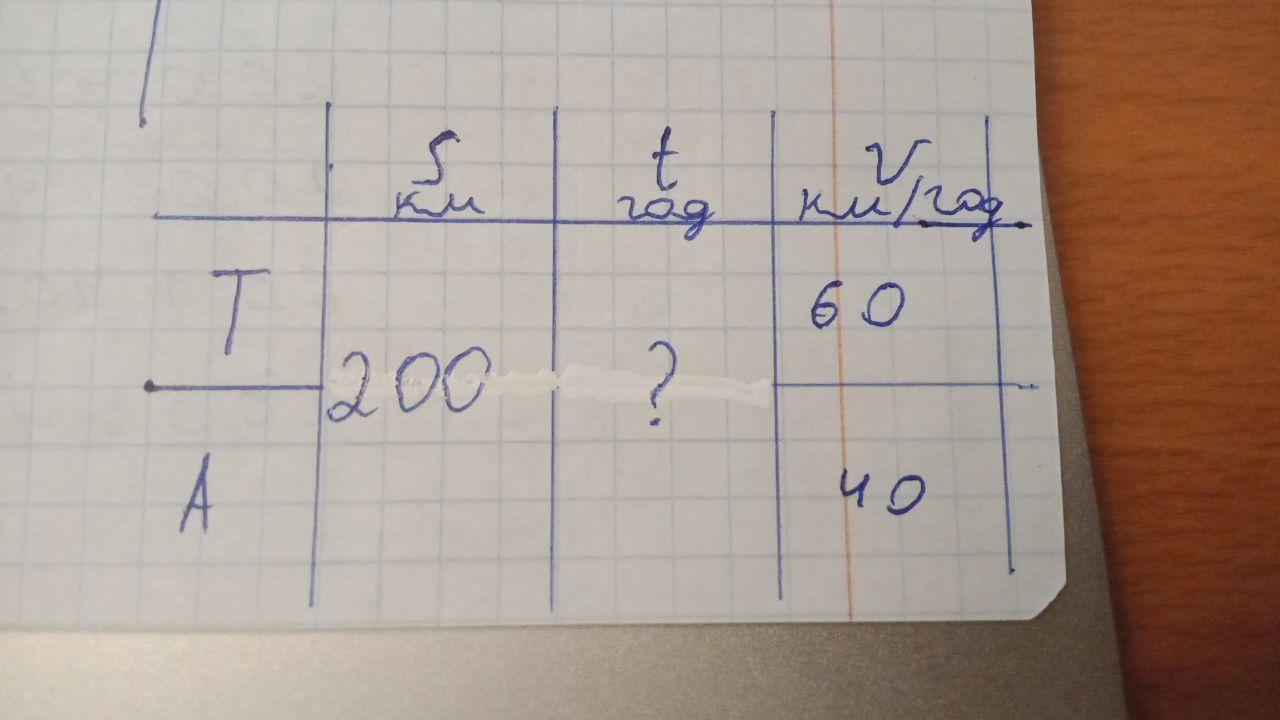 S t V
км год км/год
T 60
200 ?
A 40